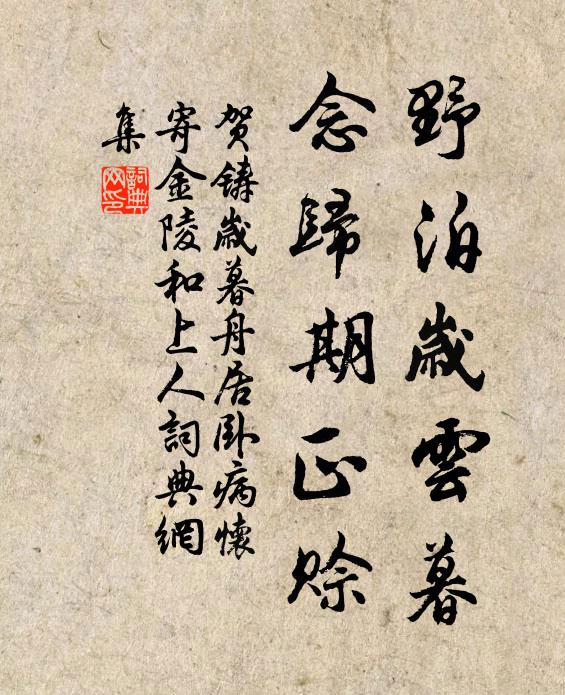 野泊歲雲暮
念歸期正賒
賀鑄歲暮舟居卧病懷
寄金陵和上人詞典網
集
詞典
网印